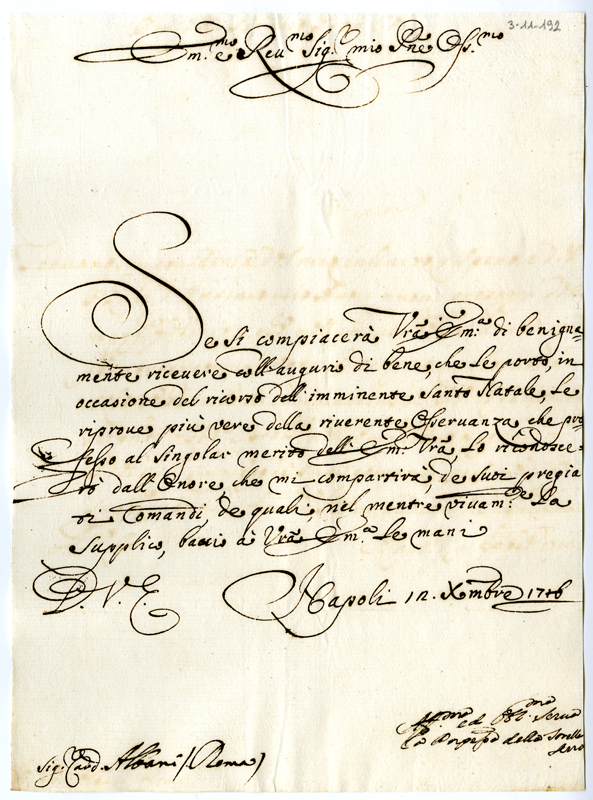 3-11-192
Em.mo e Reu.mo Sig.r mio Pñe Oss.mo
Se si compiacerà Vrã Em.a di benigna=
mente riceuere coll'augurio di bene, che Le porto, in
occasione del ricorso dell'imminente Santo Natale, Le
riproue più vere della riuerente Osseruanza, che pro
fesso al singolar merito dell'Em.a Vrã, Lo riconosce=
rò dall'Onore, che mi compartirà, de suoi pregia
ti Comandi, de quali, nel mentre viuam.te La
supplico, baccio à Vrã Em.a Le mani
D. V. E.
Napoli 12. Xmbre 1746
Aff.mo ed Obb.mo Seru
della
Sig. Card. Albani (Roma)